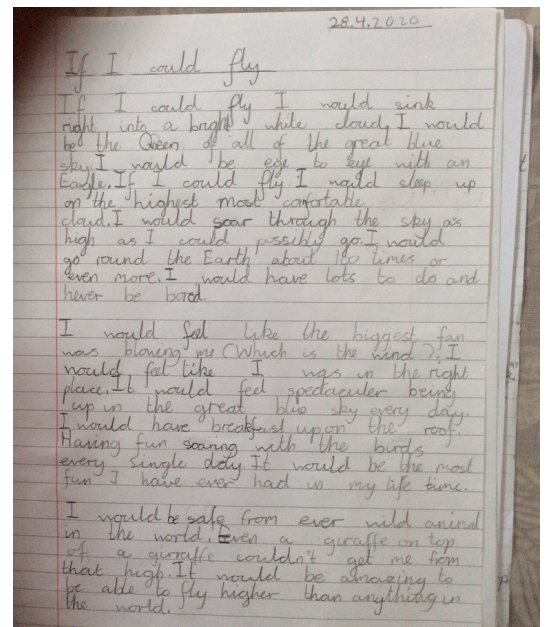 28.4.2020
If I could fly
If I could fly I would sink
right into a bright while cloud, I would
be the Queen of all of the great blue
sky. I would be eye to eye with an
Eagle. If I could fly I would sleep up
on the highest most confortable
cloud. I would soar through the sky as
high as I could possibly go. I would
go round the Earth about 100 times or
even more. I would have lots to do and
never be bored.
I would feel like the biggest fan
was blowing me (Which is the wind). I
would feel like I was in the right
place. It would feel spectaculer being
up in the great blue sky every day.
I would have breakfast upon the roof.
Having fun soaring with the birds
every single day. It would be the most
fun I have ever had in my life time.
I would be safe from ever wild animal
in the world. Even a giraffe on top
of a girraffe couldn't get me from
that high. It would be amazing to
be able to fly higher than anything in
the world.